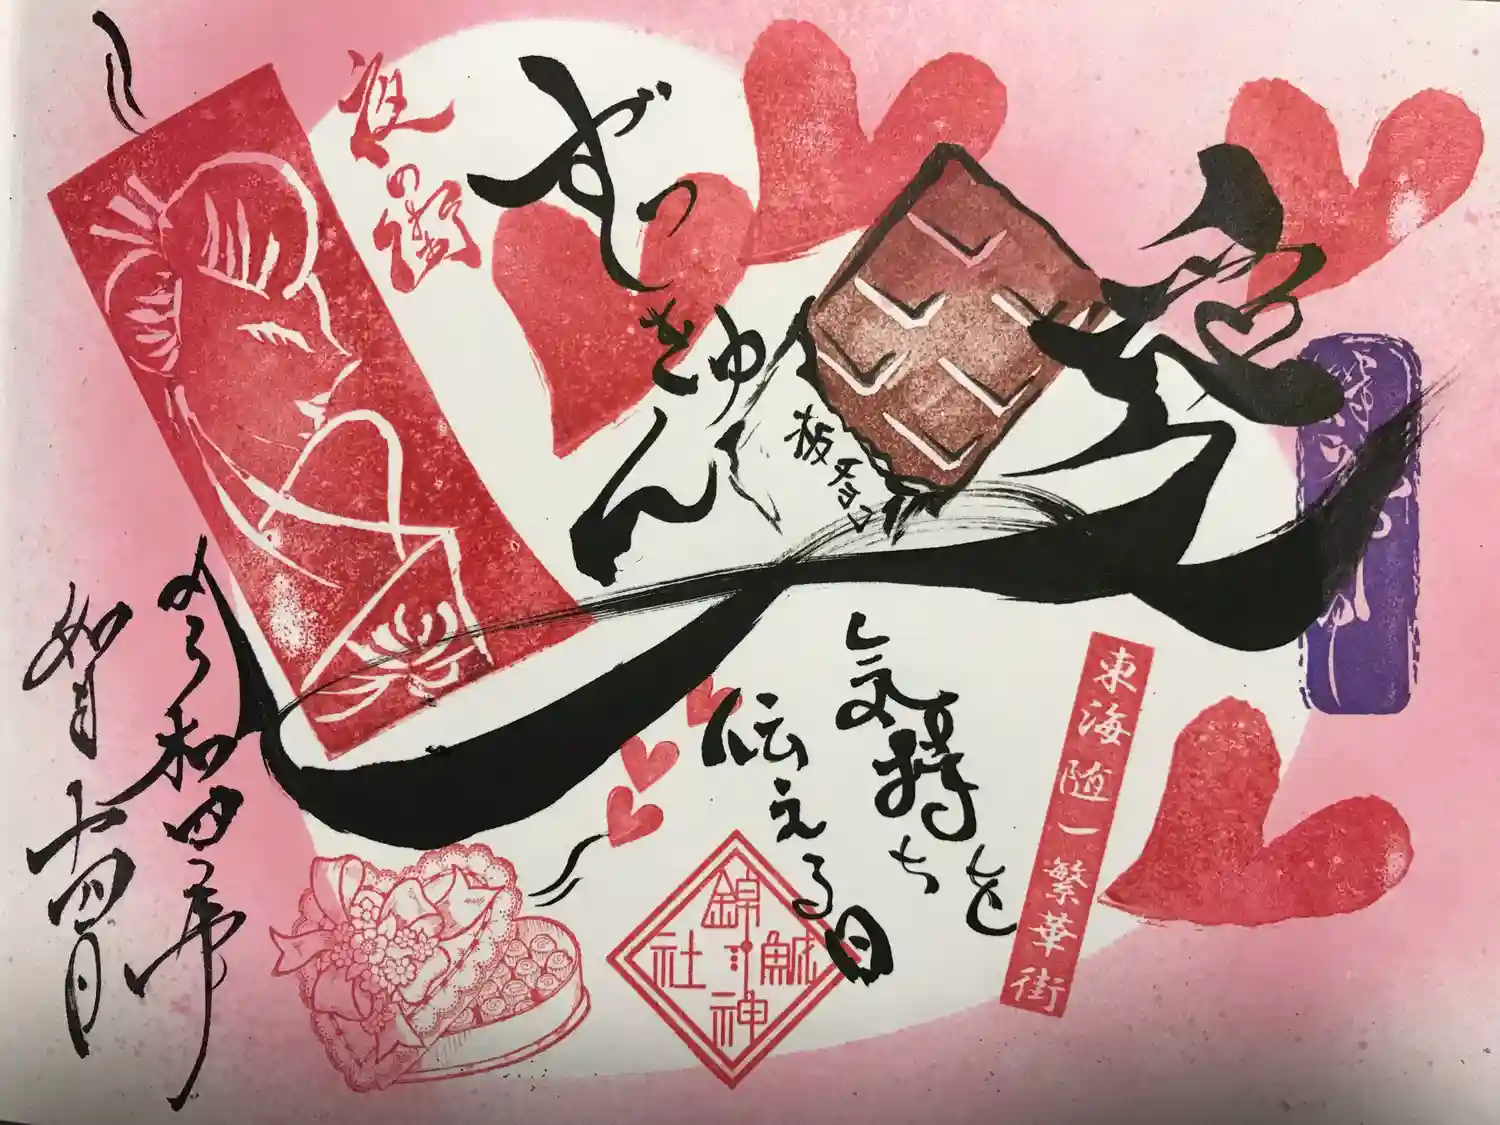 ずっきゅん
夜の街
板チョコ
気持ちを
伝える日
東海随一繁華街
錦鯱神社
令和四年
如月十四日